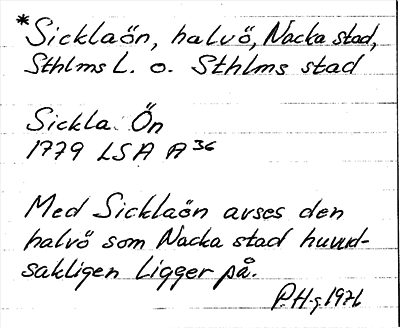 *Sicklaön, halvö, Nacka stad,
Sthlms L. o. Sthlms stad
Sickla Ön
1779 LSA A 36
Med Sicklaön avses den
halvö som Nacka stad huvud-
sakligen ligger på.
P.H-g 1971